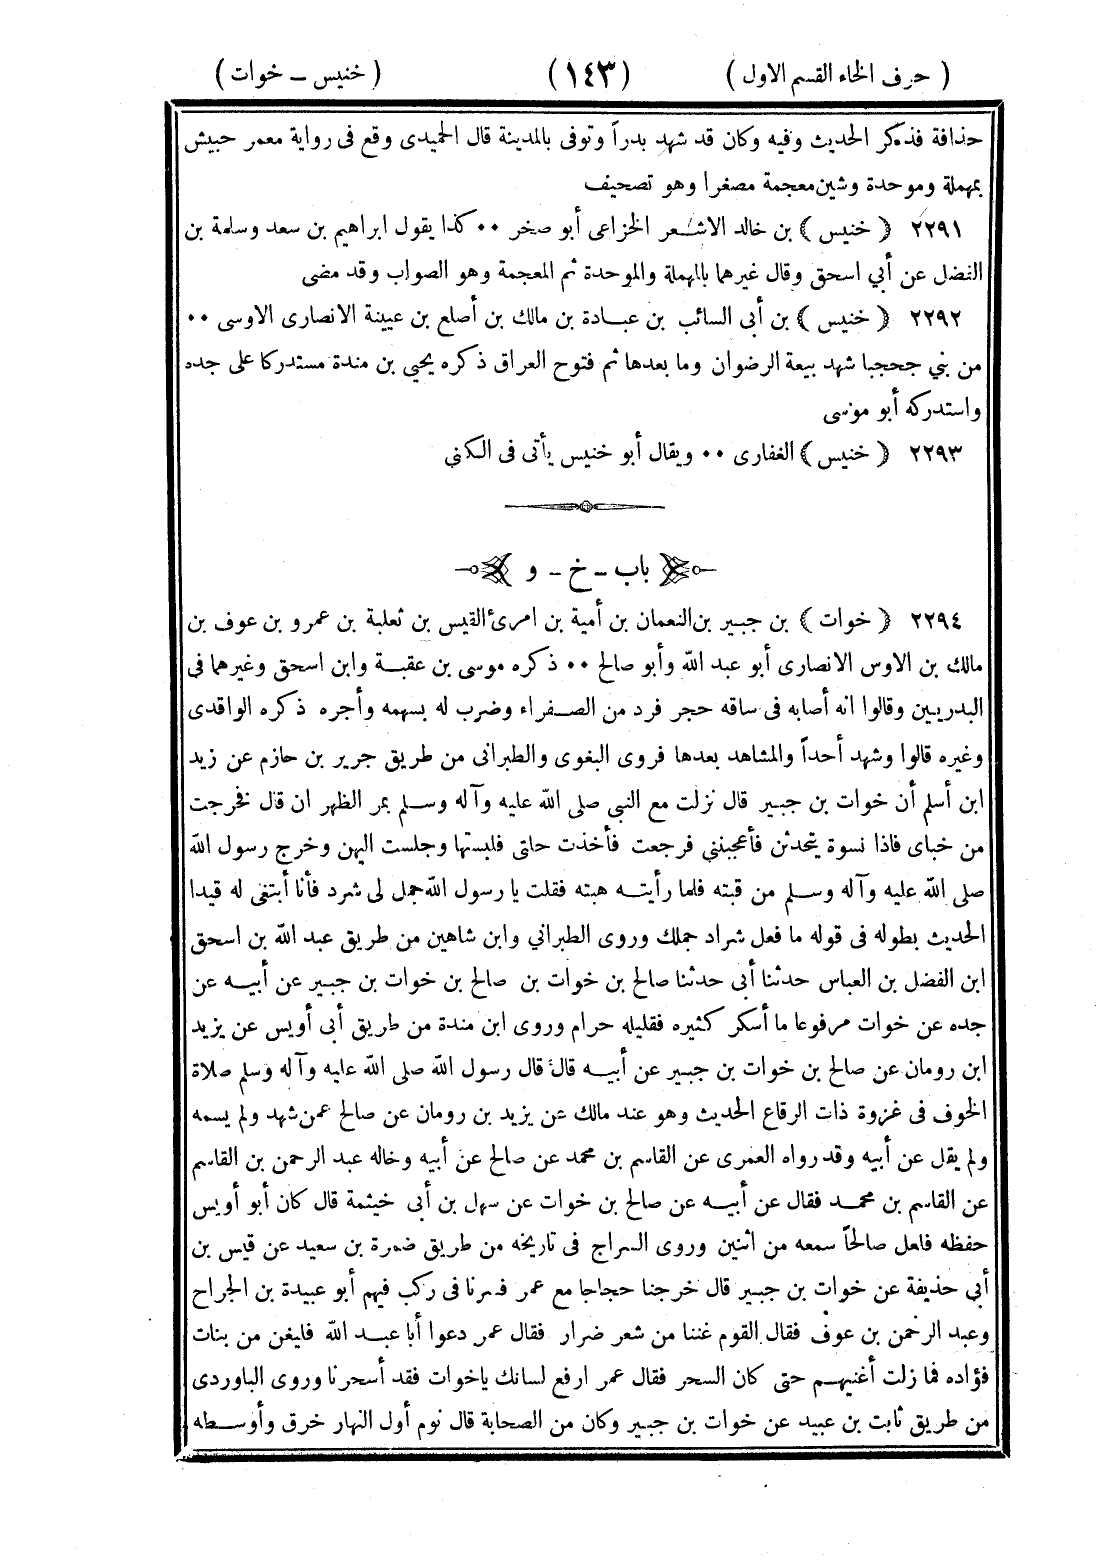 ( حرف الخاء القسم الاول ) (١٤٣) ( خنيس ــ خوات )
حذافة فذكر الحديث وفيه وكان قد شهد بدراً وتوفى بالمدينة قال الحميدى وقع فى رواية معمر حبيش
بمهملة وموحدة وشين معجمة مصغرا وهو تصحيف
٢٢٩١ ( خنيس ) بن خالد الاشعر الخزاعى أبو صخر ٠٠ كذا يقول ابراهيم بن سعد وسلمة بن
الفضل عن أبي اسحق وقال غيرهما بالمهملة والموحدة ثم المعجمة وهو الصواب وقد مضى
٢٢٩٢ ( خنيس ) بن أبى السائب بن عبادة بن مالك بن أصلع بن عيينة الانصارى الاوسى ٠٠
من بني جحجبا شهد بيعة الرضوان وما بعدها ثم فتوح العراق ذكره يحيي بن مندة مستدركا على جده
واستدركه أبو موسى
٢٢٩٣ ( خنيس ) الغفارى ٠٠ ويقال أبو خنيس يأتى فى الكنى
باب ــ خ ــ و
٢٢٩٤ ( خوات ) بن جبير بن النعمان بن أمية بن امرئ القيس بن ثعلبة بن عمرو بن عوف بن
مالك بن الاوس الانصارى أبو عبد الله وأبو صالح ٠٠ ذكره موسى بن عقبة وابن اسحق وغيرهما فى
البدريين وقالوا انه أصابه فى ساقه حجر فرد من الصفراء وضرب له بسهمه وأجره ذكره الواقدى
وغيره قالوا وشهد أحداً والمشاهد بعدها فروى البغوى والطبرانى من طريق جرير بن حازم عن زيد
ابن أسلم أن خوات بن جبير قال نزلت مع النبى صلى الله عليه وآله وسلم بمر الظهر ان قال فخرجت
من خباى فاذا نسوة يتحدثن فأعجبنني فرجعت فأخذت حلتى فلبستها وجلست اليهن وخرج رسول الله
صلى الله عليه وآله وسلم من قبته فلما رأيته هبته فقلت يا رسول الله جمل لى شرد فأنا أبتغى له قيدا
الحديث بطوله فى قوله ما فعل شراد جملك وروى الطبراني وابن شاهين من طريق عبد الله بن اسحق
ابن الفضل بن العباس حدثنا أبى حدثنا صالح بن خوات بن صالح بن خوات بن جبير عن أبيه عن
جده عن خوات مرفوعا ما أسكر كثيره فقليله حرام وروى ابن مندة من طريق أبى أويس عن يزيد
ابن رومان عن صالح بن خوات بن جبير عن أبيه قال قال رسول الله صلى الله عليه وآله وسلم صلاة
الخوف فى غزوة ذات الرقاع الحديث وهو عند مالك عن يزيد بن رومان عن صالح عمن شهد ولم يسمه
ولم يقل عن أبيه وقد رواه العمرى عن القاسم بن محمد عن صالح عن أبيه وخاله عبد الرحمن بن القاسم
عن القاسم بن محمد فقال عن أبيه عن صالح بن خوات عن سهل بن أبى خيثمة قال كان أبو أويس
حفظه فلعل صالحاً سمعه من اثنين وروى السراج فى تاريخه من طريق ضمرة بن سعيد عن قيس بن
أبي حذيفة عن خوات بن جبير قال خرجنا حجاجا مع عمر فسرنا فى ركب فيهم أبو عبيدة بن الجراح
وعبد الرحمن بن عوف فقال القوم غننا من شعر ضرار فقال عمر دعوا أبا عبد الله فليغن من بنات
فؤاده فما زلت أغنيهم حتى كان السحر فقال عمر ارفع لسانك ياخوات فقد أسحرنا وروى الباوردى
من طريق ثابت بن عبيد عن خوات بن جبير وكان من الصحابة قال نوم أول النهار خرق وأوسطه